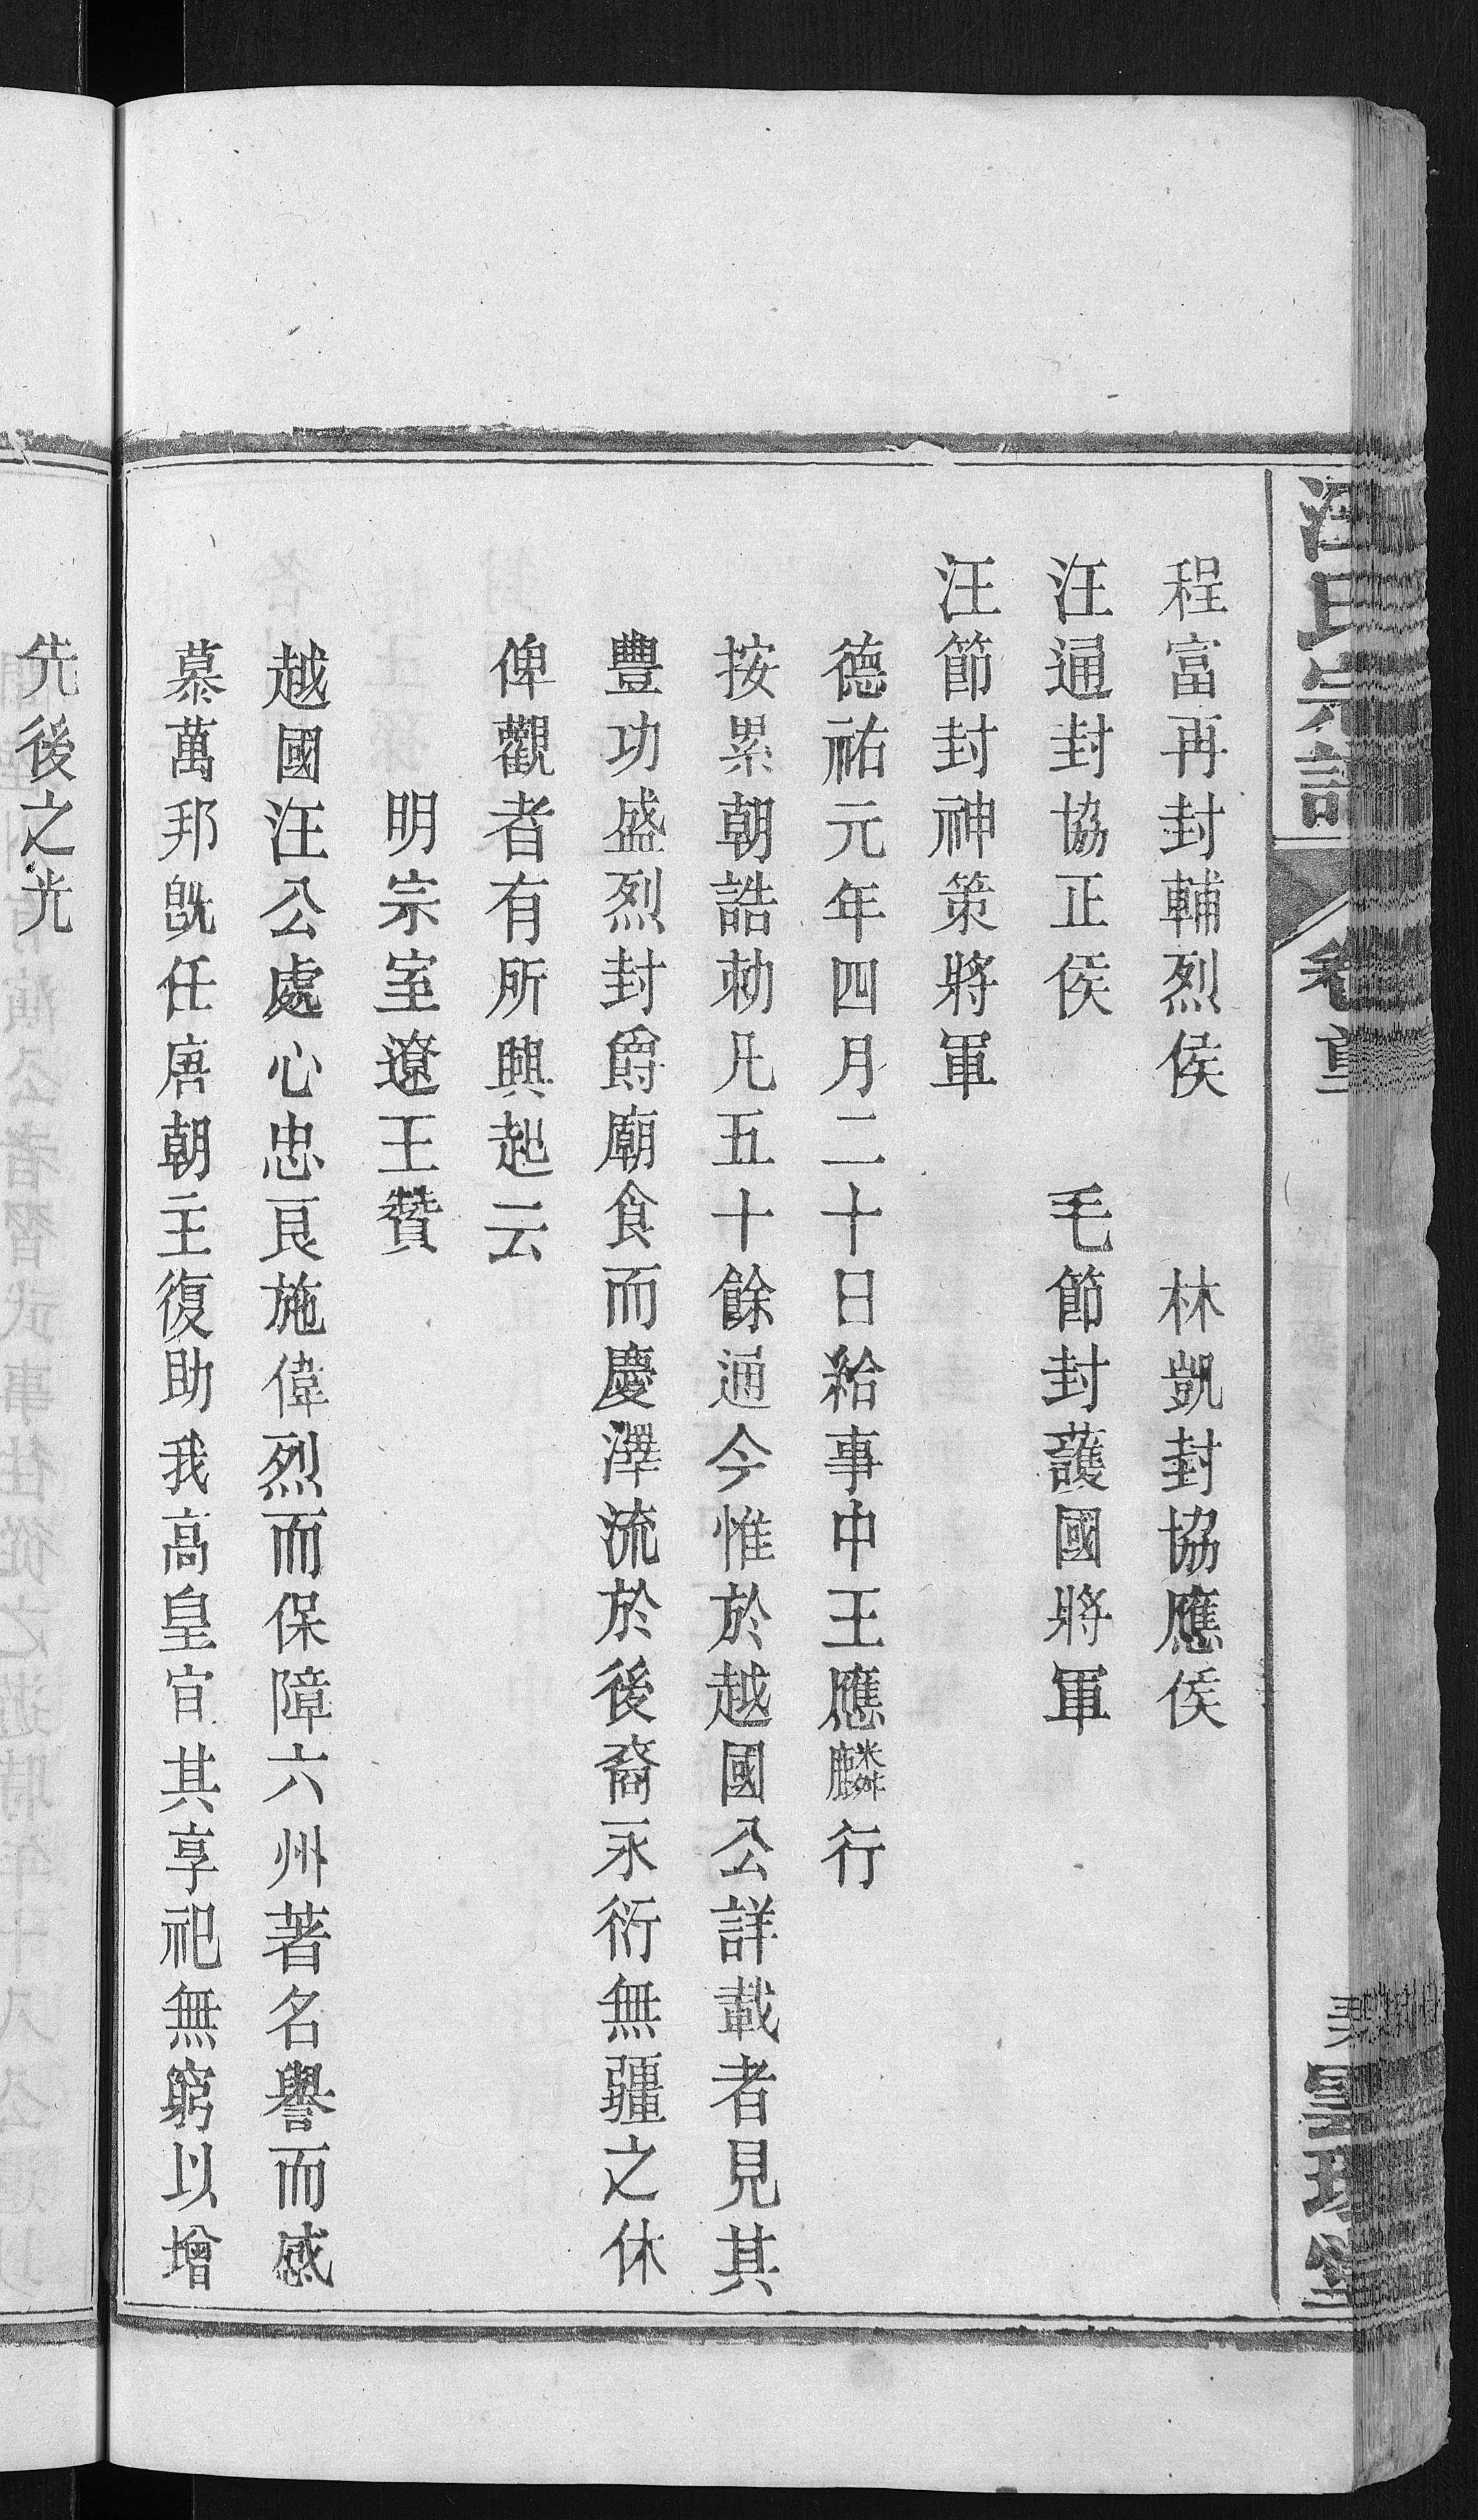 汪氏宗譜
卷首
程富再封輔烈侯　林凱封協應侯
汪通封協正侯　毛節封護國將軍
汪節封神策將軍
德祐元年四月二十日給事中王應麟行
按累朝誥勅凡五十餘通今惟於越國公詳載者見其
豐功盛烈封爵廟食而慶澤流於後裔永衍無疆之休
俾觀者有所興起云
明宗室遼王贊
越國汪公處心忠良施偉烈而保障六州著名譽而感
慕萬邦旣任唐朝主復助我高皇宜其享祀無窮以增
先後之光